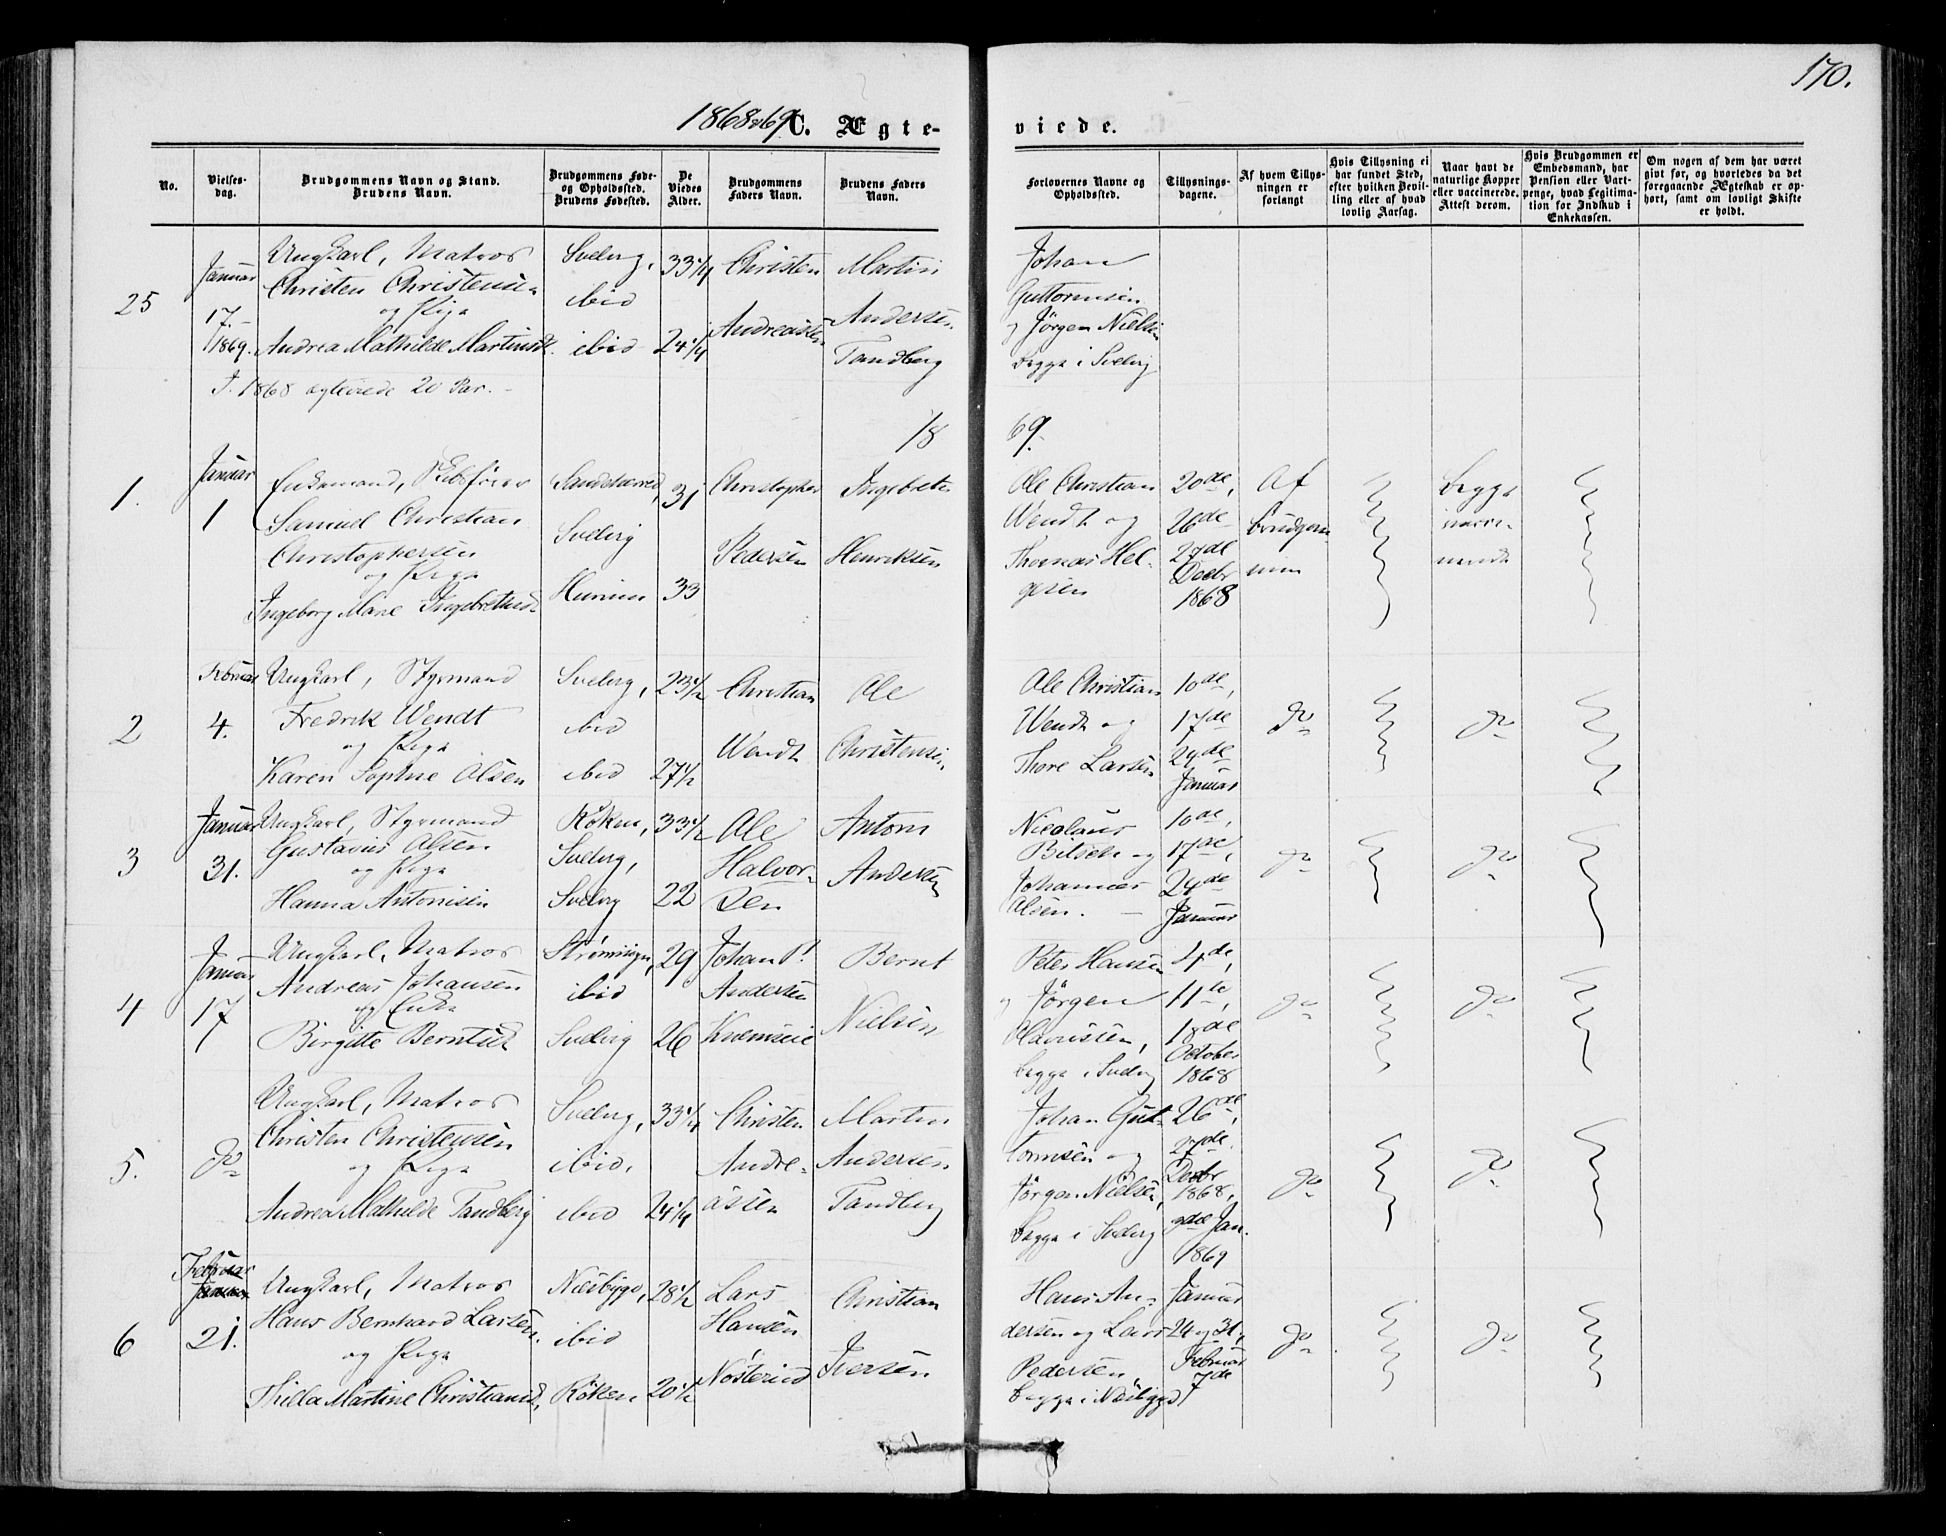 170.
1868 og 69. C. Ægte-
viede.
No.
Vielses-
dag.
Brudgommens Navn og Stand.
Brudens Navn.
Brudgommens Føde-
og Opholdssted.
Brudens Fødested.
De
Viedes
Alder.
Brudgommens
Faders Navn.
Brudens Faders
Navn.
Forlovernes Navne og
Opholdssted.
Tillysnings-
dagene.
Af hvem Tillys-
ningen er
forlangt
Hvis Tillysning ei
har fundet Sted,
efter hvilken Bevil-
ling eller af hvad
lovlig Aarsag.
Naar havt de
naturlige Kopper
eller vaccinerede.
Attest derom.
Hvis Brudgommen er
Embedsmand, har
Pension eller Vart-
penge, hvad Legitima-
tion for Indskud i
Enkekassen.
Om nogen af dem har været
gift før, og hvorledes da det
foregaaende Ægteskab er op-
hørt, samt om lovligt Skifte
er holdt.
25
Januar
17.
1869.
Ungkarl, Matros
Christen Christensen
og Pige
Andrea Mathilde Martinsd.
Svelvig,
ibid
ibid
33 1/4
24 1/4
Christen
Andreassen
Martin
Andersen
Tandberg
Johan
Guttormsen
og Jörgen Nielsen
begge i Svelvig
I 1868 ægteviede 20 Par. -
18
69.
1.
Januar
1
Enkemand, Skibsfører
Samuel Christian
Christophersen
og Pige
Ingeborg Marie Ingebretsd.
Svelvig
Hurum
31
33
Christopher
Pedersen
Ingebret
Henriksen
Ole Christian
Wendt og
Thomas Hel-
gesen
20de,
26de
27de
Decbr
1868
Af
Brudgom
men
begge
vacci-
nerede
2
Februar
4.
Ungkarl, Styrmand
Fredrik Wendt
og Pige
Karen Sophie Olsen
Svelvig,
ibid
ibid
23 1/2
27 1/2
Christian
Wendt
Ole
Christensen
Ole Christian
Wendt og
Thore Larsen
10de,
17de
24de
Januar
do
do
3
Januar
31.
Ungkarl, Styrmand
Gustavus Olsen
og Pige
Hanna Antonisen
Röken,
Svelvig,
Svelvig
33 1/2
22
Ole
Halvor-
sen
Antoni
Andersen
Nicolaus
og
Johannes
Olsen. -
10de,
17de,
24de
Januar
do
do
4
Januar
17
Ungkarl, Matros
Andreas Johansen
og Enke
Birgitte Berntsd.
ibid
Svelvig
29
26
Johan P.
Andersen
Bernt
Nielsen
Peter Hansen
og Jörgen
begge i Svelvig
4de,
11te,
18de
October
1868
do
do
5.
do
Ungkarl, Matros
Christen Christensen
og Pige
Andrea Mathilde Tandberg
Svelvig,
ibid.
ibid
33 1/4
24 1/4
Christen
Andre-
assen
Martin
Andersen
Tandberg
Johan Gut-
tormsen og
Jörgen Nielsen,
begge i Svelvig
26de,
27de.
Decbr
1868,
Jan.
1869
do
do
6
Februar
Januar
21.
Ungkarl, Matros
Hans Bernhard Larsen.
og Pige
Thilla Martine Christiansd.
Næsbygd,
ibid
Röken
28 1/2
20 1/2
Lars
Hansen
Christian
Iversen
Hans An-
dersen og Lars
Pedersen,
begge i Næsbygd
Januar
24 og 31,
Februar
7de
do
do